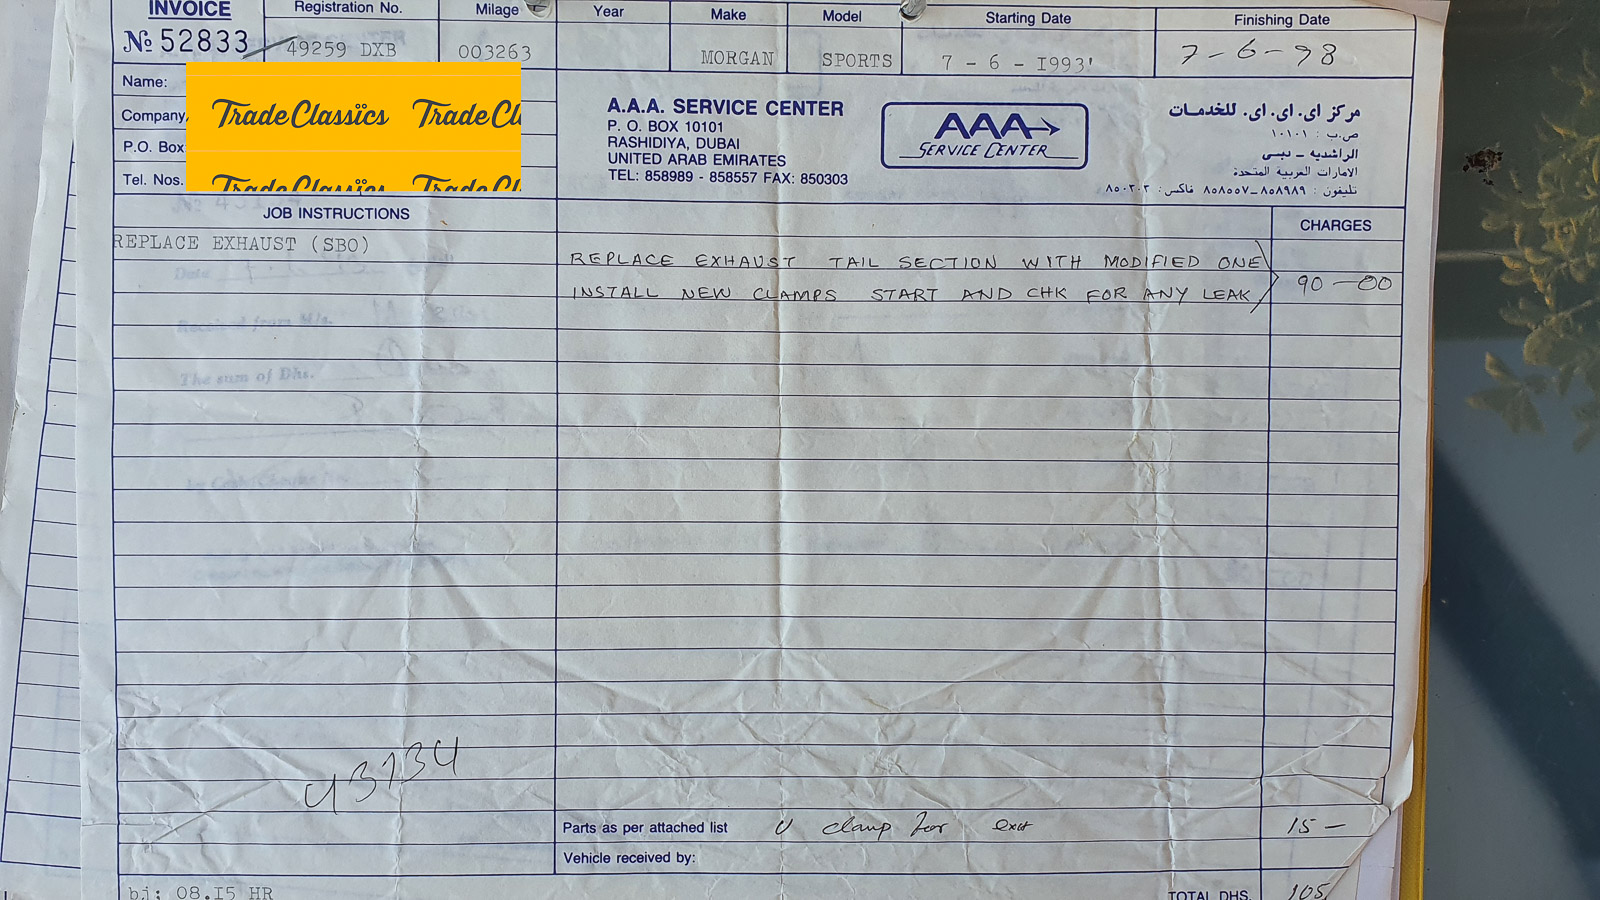 INVOICE
Registration No.
Milage
Year
Make
Model
Starting Date
Finishing Date
№ 52833
49259 DXB
003263
MORGAN
SPORTS
7 - 6 - I993'
7-6-98
Name:
Company
P.O. Box
Tel. Nos.
TradeClassics TradeCl
TradeClassics TradeCl
A.A.A. SERVICE CENTER
P. O. BOX 10101
RASHIDIYA, DUBAI
UNITED ARAB EMIRATES
TEL: 858989 - 858557 FAX: 850303
AAA
SERVICE CENTER
مركز اى. اى. اى. للخدمات
ص.ب : ١٠١٠١
الراشديه – دبسى
الامارات العربية المتحدة
تليفون : ٨٥٨٩٨٩–٨٥٨٥٥٧ فاكس: ٨٥٠٣٠٣
JOB INSTRUCTIONS
CHARGES
REPLACE EXHAUST (SBO)
REPLACE EXHAUST TAIL SECTION WITH MODIFIED ONE
INSTALL NEW CLAMPS START AND CHK FOR ANY LEAK
90 - 00
43734
Parts as per attached list
U clamp for exst
15 -
Vehicle received by:
bj; 08.I5 HR
TOTAL DHS.
105
Received from M/s.
The sum of Dhs.